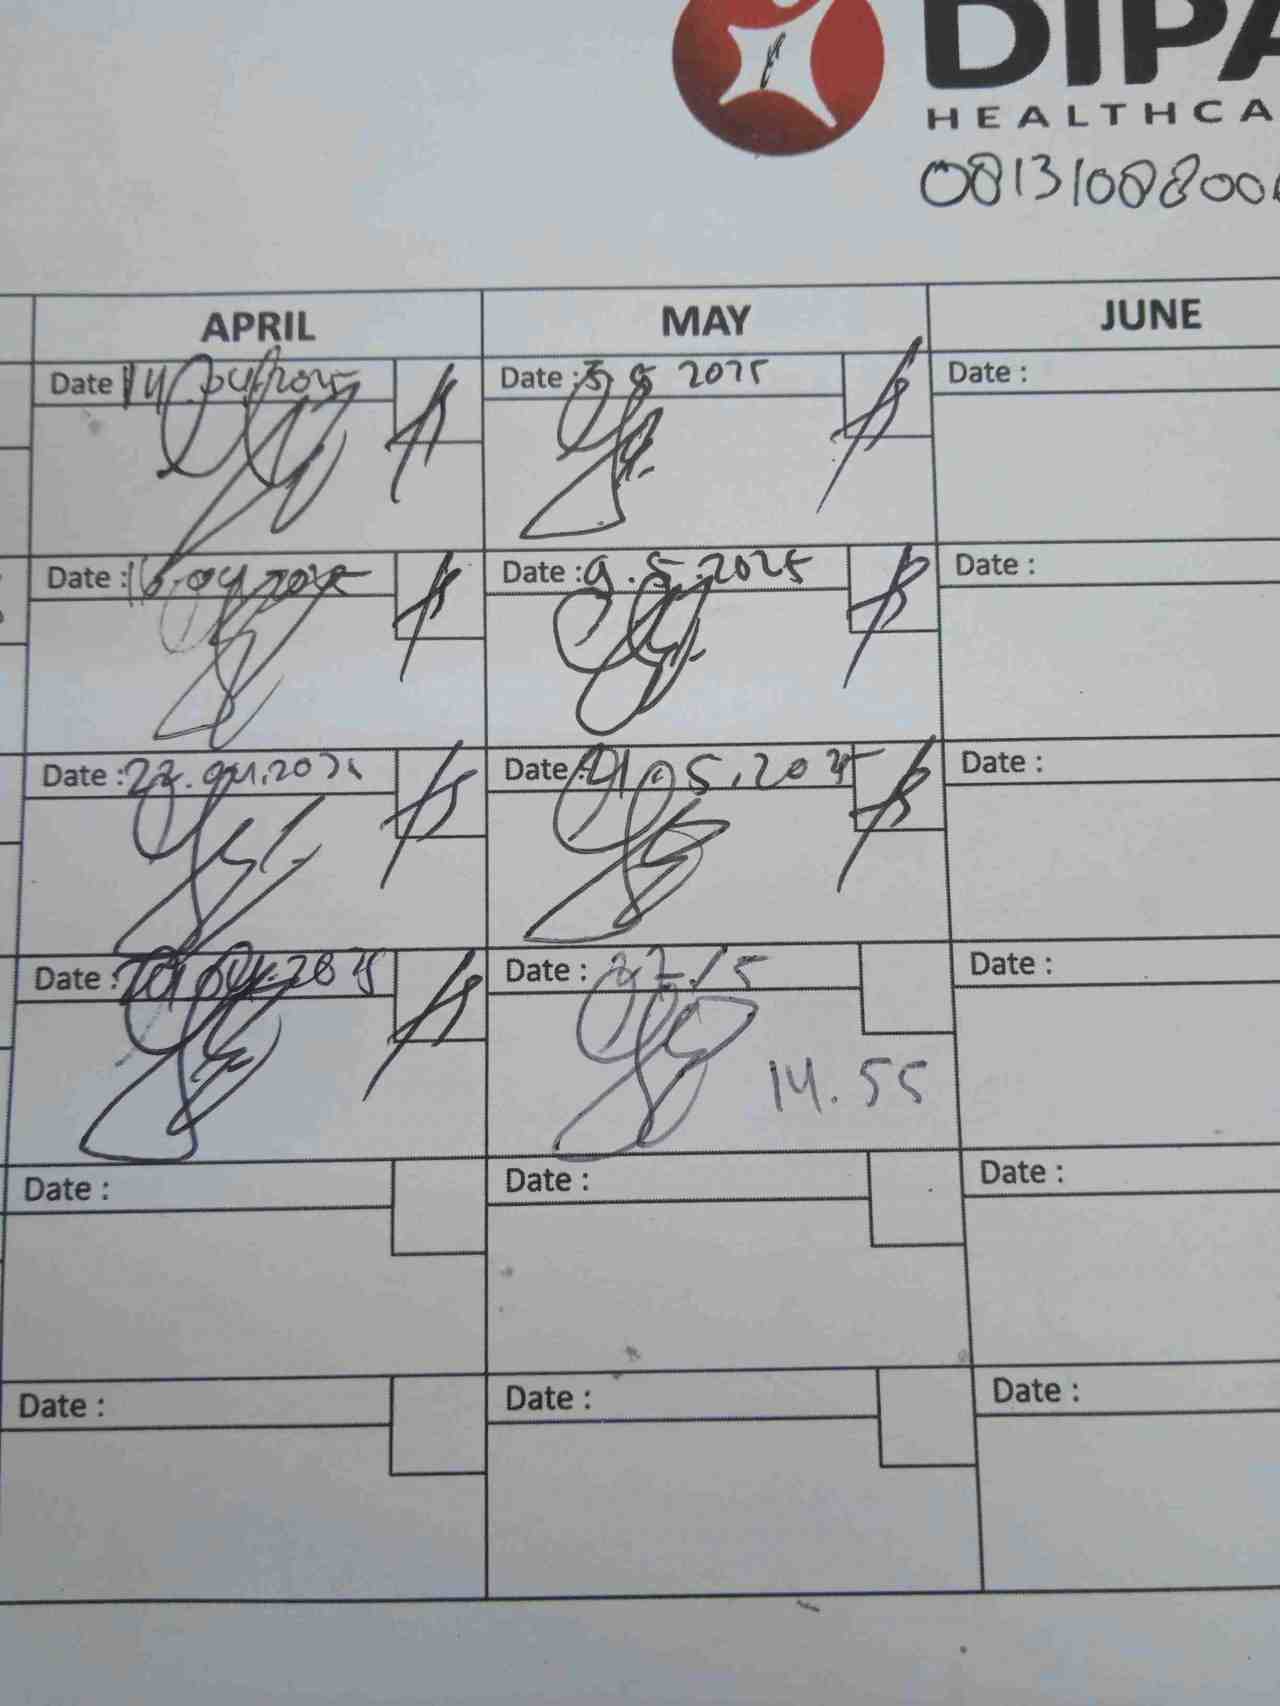 DIPA
HEALTHCA
0813108800
APRIL MAY JUNE
Date : 14.04.2025 Date : 5 5 2025 Date :
Date : 16.04.2025 Date : 9.5.2025 Date :
Date : 22.04.2025 Date : 21.05.2025 Date :
Date : Date : 27/5 Date :
14.55
Date : Date : Date :
Date : Date : Date :